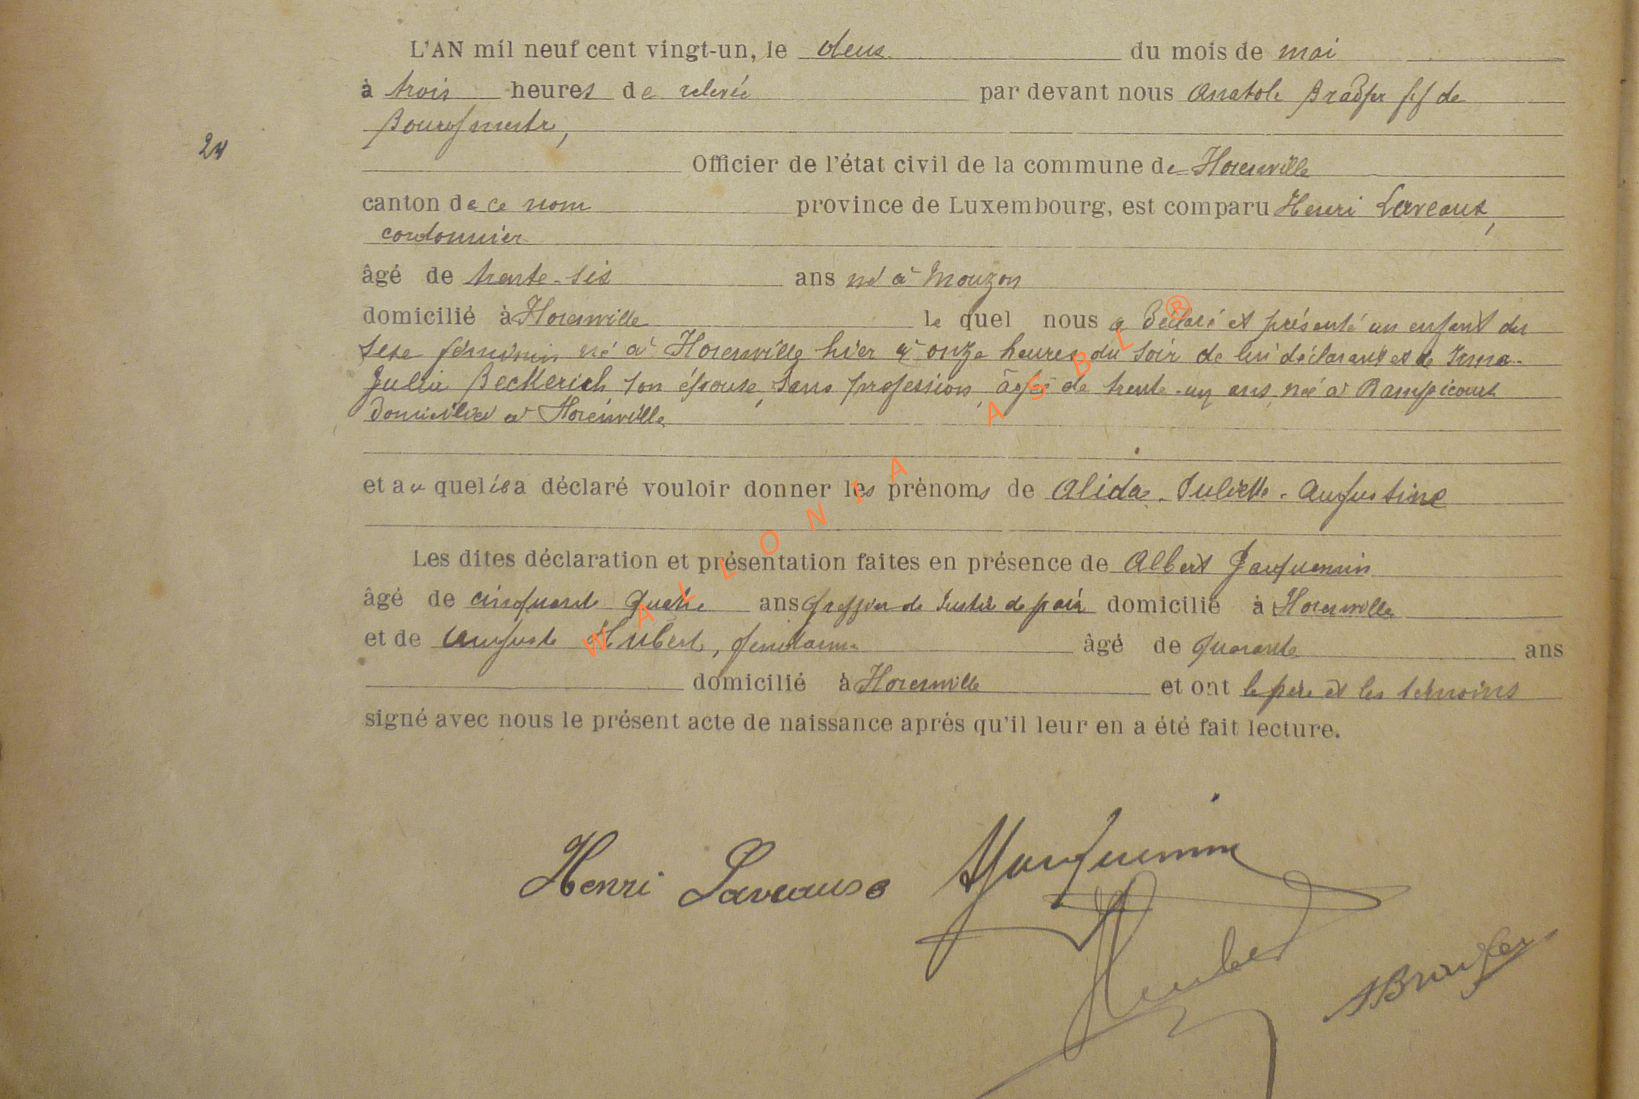 L'AN mil neuf cent vingt-un, le deux du mois de mai
à trois heures de relevée par devant nous Anatole Bradfer ff de
Bourgmestre,
24
Officier de l'état civil de la commune de Florenville
canton de ce nom province de Luxembourg, est comparu Henri Laveaux,
cordonnier
âgé de trente-six ans né à Mouzon
domicilié à Florenville lequel nous a déclaré et présenté un enfant du
sexe féminin né à Florenville hier à onze heures du soir de lui déclarant et de Irma-
Julie Beckerich son épouse, sans profession, âgée de trente-un ans, née à
domiciliée à Florenville
et auquel il a déclaré vouloir donner les prénoms de Alida-Juliette-Augustine
Les dites déclaration et présentation faites en présence de Albert Jacquemin
âgé de cinquante quatre ans greffier de Justice de paix domicilié à Florenville
et de Auguste Hubert, gendarme âgé de quarante ans
domicilié à Florenville et ont le père et les témoins
signé avec nous le présent acte de naissance aprés qu'il leur en a été fait lecture.
WALLONIA ASBL ®
Henri Laveaux AJacquemin
Hubert ABradfer